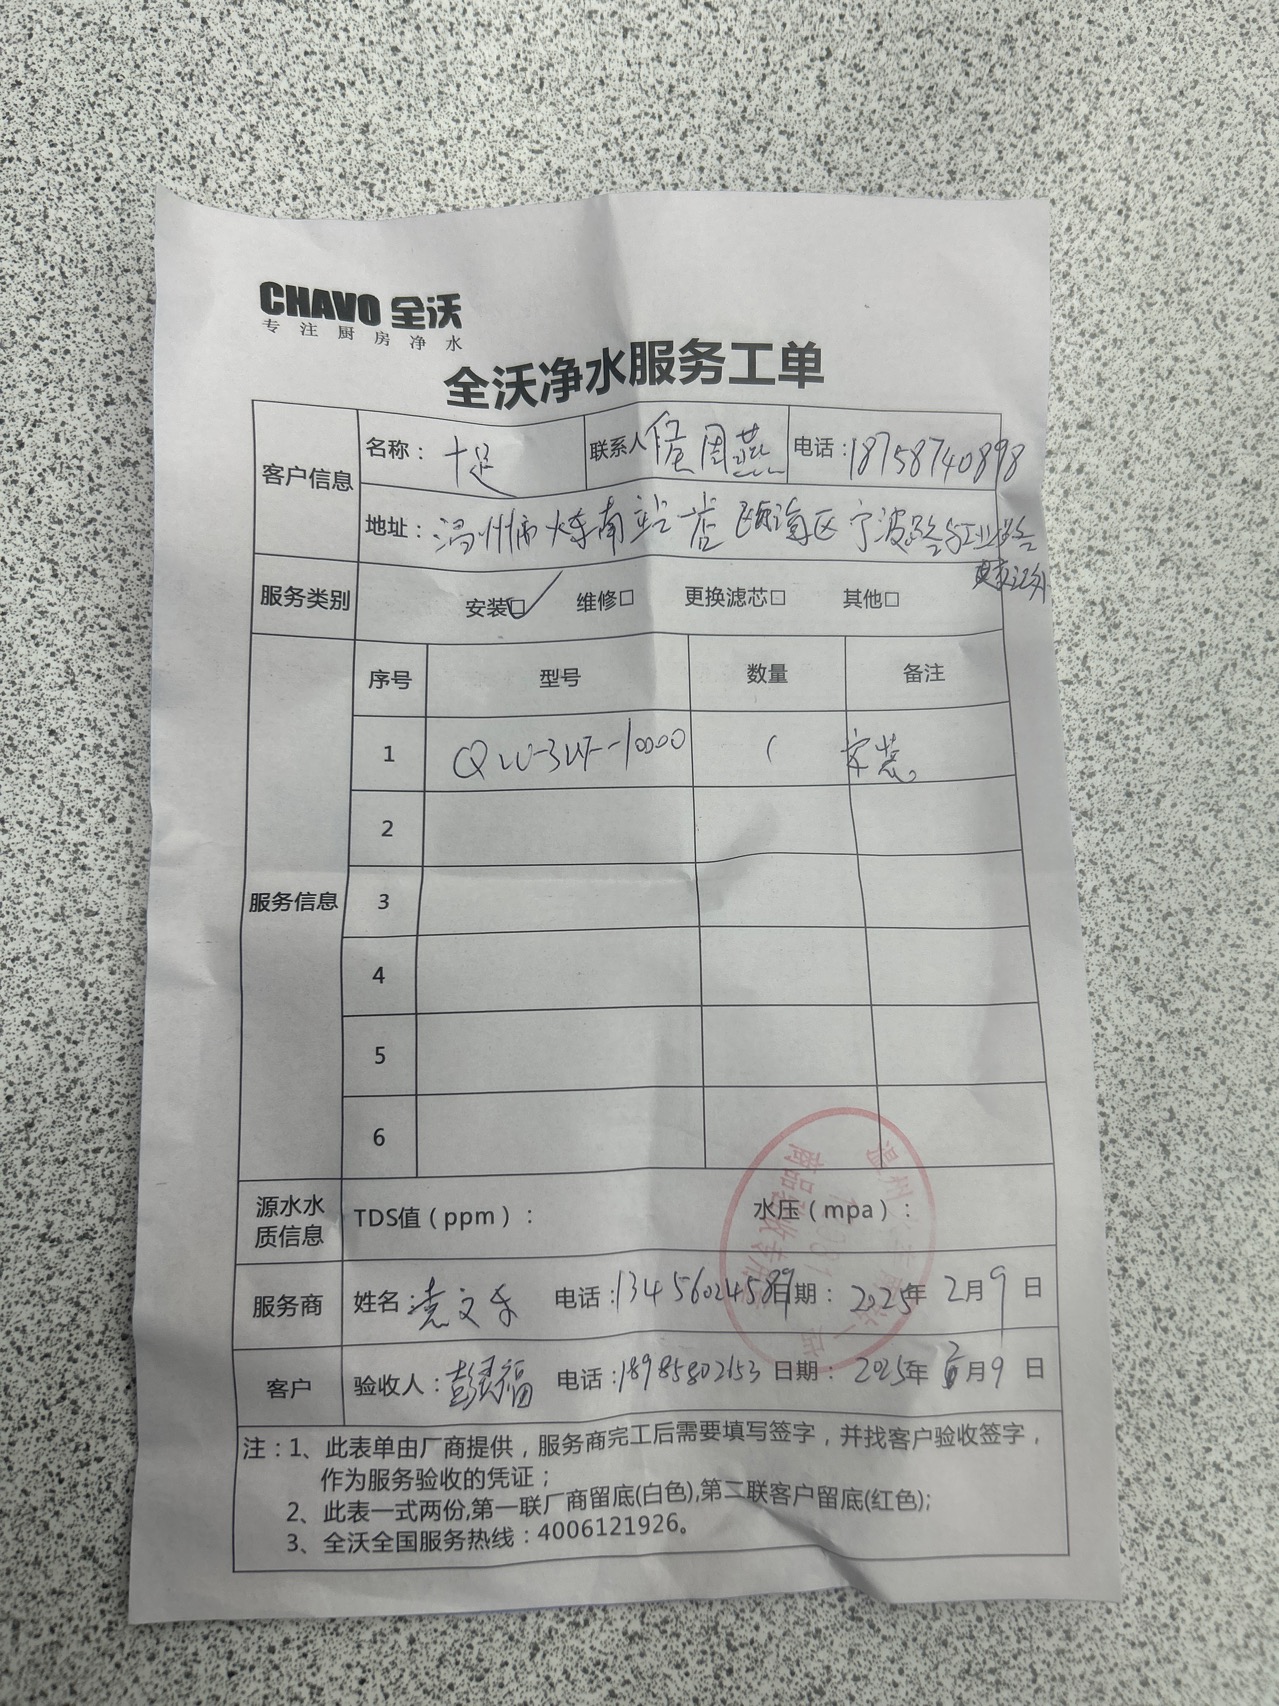 CHAVO 全沃
专注厨房净水
全沃净水服务工单
客户信息
名称：十足
联系人 侯周燕
电话：18758740898
地址：温州市火车南站一店 瓯海区宁波路与工业路
服务类别
安装☑ 维修□ 更换滤芯□ 其他□
服务信息
序号 型号 数量 备注
1 QW-3UF-10000 1 安装
2
3
4
5
6
源水水质信息
TDS值（ppm）： 水压（mpa）：
服务商 姓名： 文 电话：13456024589 日期：2025年2月9日
客户 验收人：彭 福 电话：18985802153 日期：2025年2月9日
注：1、此表单由厂商提供，服务商完工后需要填写签字，并找客户验收签字，
作为服务验收的凭证；
2、此表一式两份,第一联厂商留底(白色),第二联客户留底(红色);
3、全沃全国服务热线：4006121926。